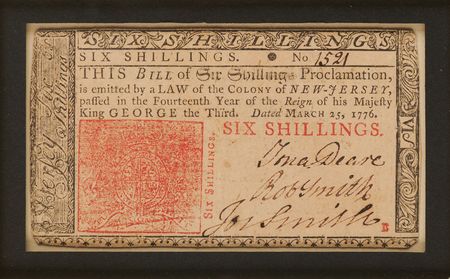 SIX SHILLINGS
SIX SHILLINGS. No 1521
THIS Bill of Six Shillings Proclamation,
is emitted by a LAW of the COLONY of NEW-JERSEY,
passed in the Fourteenth Year of the Reign of his Majesty
King GEORGE the Third. Dated MARCH 25, 1776.
SIX SHILLINGS.
SIX SHILLINGS.
Jona Deare
Rob Smith
Jos Smith
B
Jersey Six
Shillings